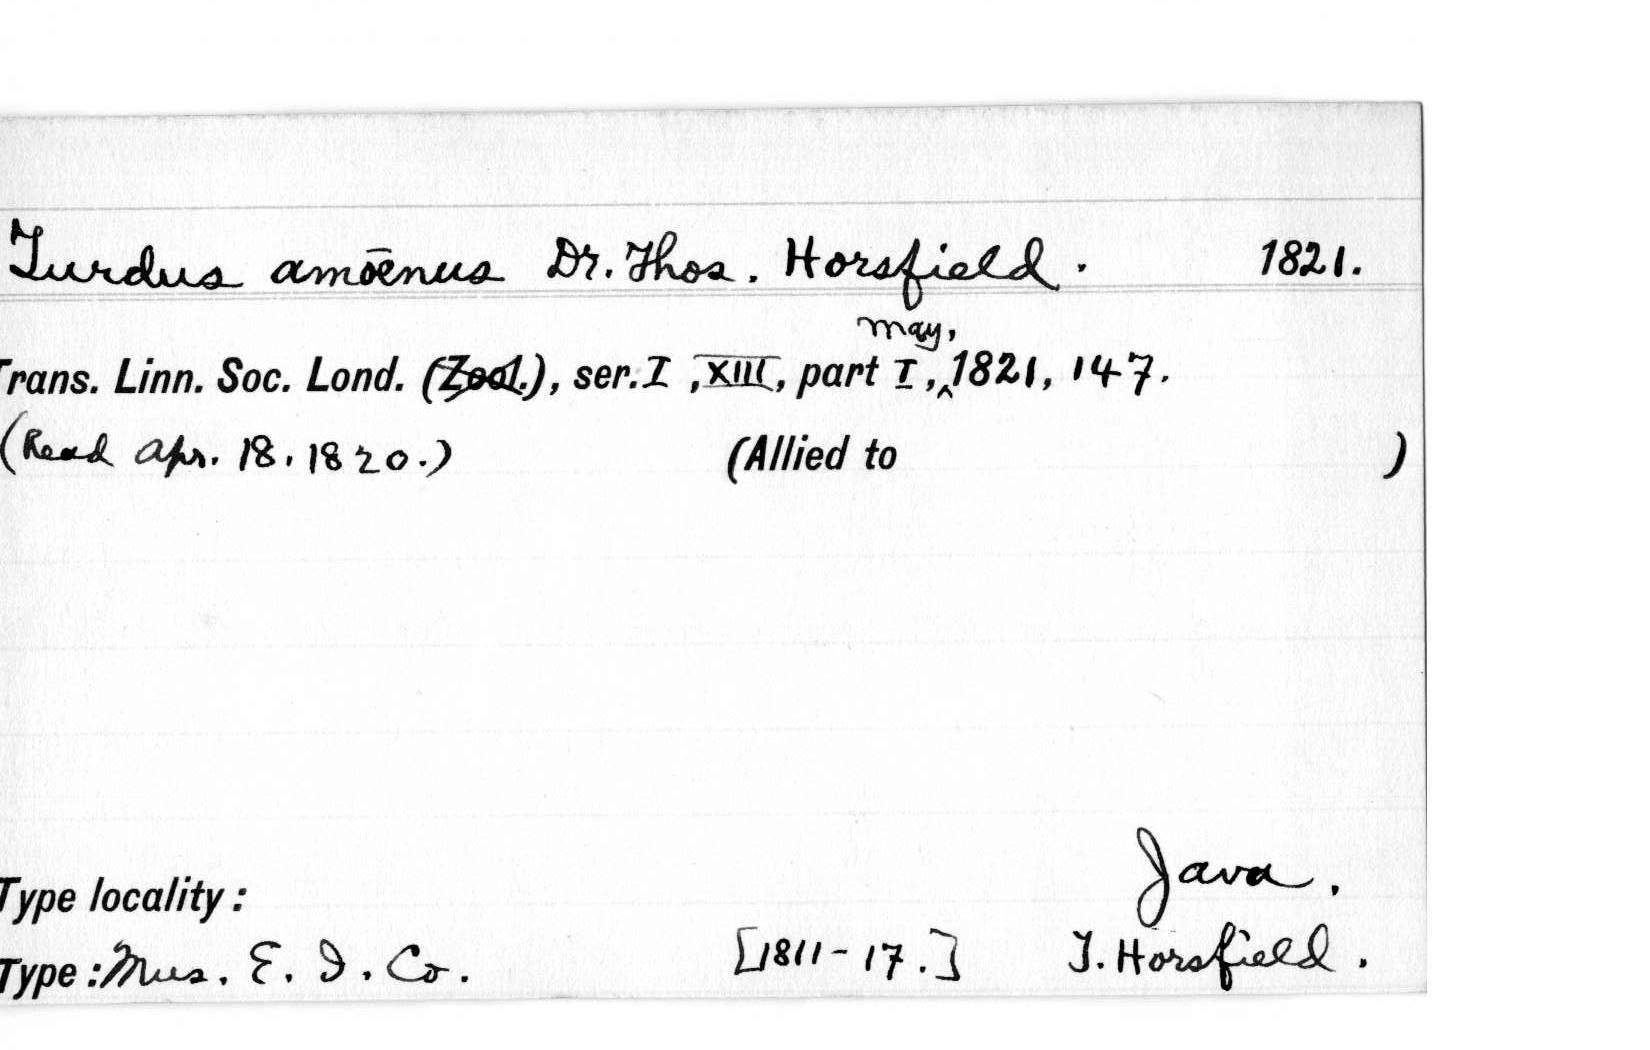 Turdus amoenus Dr. Thos. Horsfield. 1821.
May,
Trans. Linn. Soc. Lond. (Zool.), ser. I, XIII, part I, ^1821, 147.
(Read Apr. 18, 1820.) (Allied to )
Java.
Type locality:
Type: Mus. E. I. Co. [1811-17.] T. Horsfield.